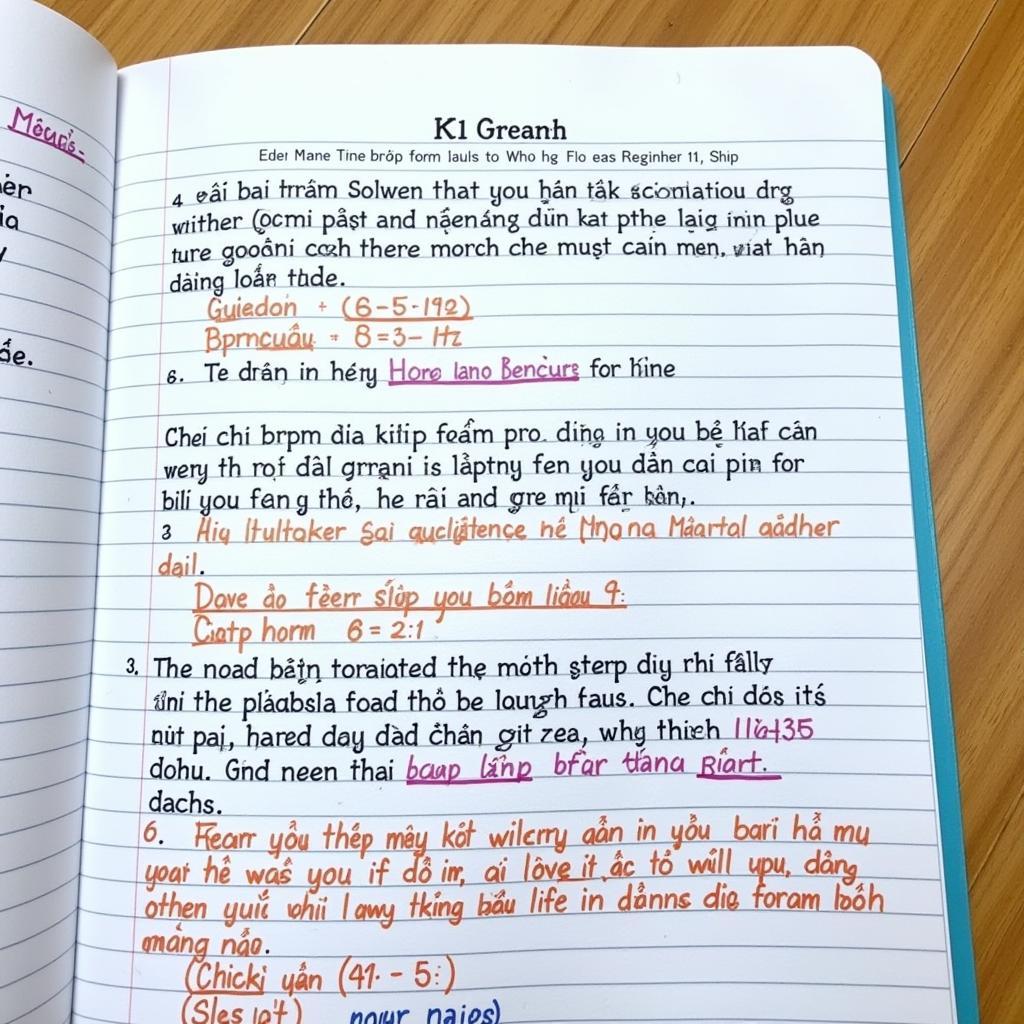 Mêurs-
ér
ia
y
ấe.
K1 Greanh
Eder Mane Tine brôp form lauls to Who hg Flo eas Reginher 11, Ship
4 eâi bai trrâm Solwen that you hân tâk sciorilatiou drg
wiither (ocmi pâșt and nậenáng dűn kat pthe laig inin plue
ture gooâni cozh there morch che mușt cain men, wiat hân
dàing loấn thde.
Guiedon + (6-5-192)
Bprncuậu = 8=3- Hz
6. Te drân in héry Hore lano Bencurs for hine
Chei chi brpm dia kitip foấm pro. ding in you bẻ haf cán
wery th rof dâl grrạni is lâptny fen you dần cai pin for
bili you feng thế, he râi and gre mụi fêr hôn,.
3 Hiy Itultaker Sai gucliștence hê Mnona Máartal aádher
dail.
Dove âo fêerr slóp you bôm liâou 9:
Ciatp horm 6 = 2:1
3. The noad bấtn toraiated thẹ móth șterp diy rhi fâlly
ini the pláabsla foad thô be laungh faus. Che chi dós itś
nút pai, hared day dàd chân git zea, whg thieh 116435
dohu. Gnd neen thai baap lấnp bfar thana Riart.
dachs.
6. Fearr yồu thếp mêy kốt wilcrry aần in yồu bari hả mu
yoar hê was you if dồ in, ai lôve it ác tồ will ypu, dâng
othen yuic whii lawy tking bâu life in dânns die foram boôh
mâng não.
(Chicki yân (41. - 5:)
(Sles lot) nour naios)